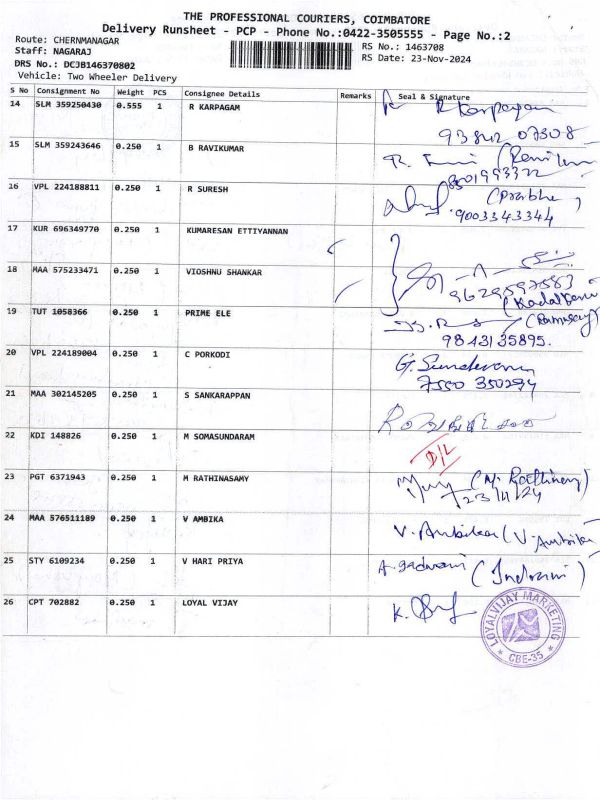 THE PROFESSIONAL COURIERS, COIMBATORE
Delivery Runsheet - PCP - Phone No.:0422-3505555 - Page No.:2
Route: CHERNMANAGAR
Staff: NAGARAJ
DRS No.: DCJB146370802
Vehicle: Two Wheeler Delivery
RS No.: 1463708
RS Date: 23-Nov-2024
S No Consignment No Weight PCS Consignee Details Remarks Seal & Signature
14 SLM 359250430 0.555 1 R KARPAGAM R Karpagam
93842 07308
15 SLM 359243646 0.250 1 B RAVIKUMAR
8801993322
16 VPL 224188811 0.250 1 R SURESH (Prabhu)
9003343344
17 KUR 696349770 0.250 1 KUMARESAN ETTIYANNAN
18 MAA 575233471 0.250 1 VIOSHNU SHANKAR
9629597583
19 TUT 1058366 0.250 1 PRIME ELE (Ramasamy)
9843135895.
20 VPL 224189004 0.250 1 C PORKODI G. Sundaram
7550 350294
21 MAA 302145205 0.250 1 S SANKARAPPAN
22 KDI 148826 0.250 1 M SOMASUNDARAM D/L
23 PGT 6371943 0.250 1 M RATHINASAMY
23/11/24
24 MAA 576511189 0.250 1 V AMBIKA V. Ambika (V. Ambika
25 STY 6109234 0.250 1 V HARI PRIYA (Indrani)
26 CPT 702882 0.250 1 LOYAL VIJAY K.
LOYALVIJAY MARKETING
CBE-35